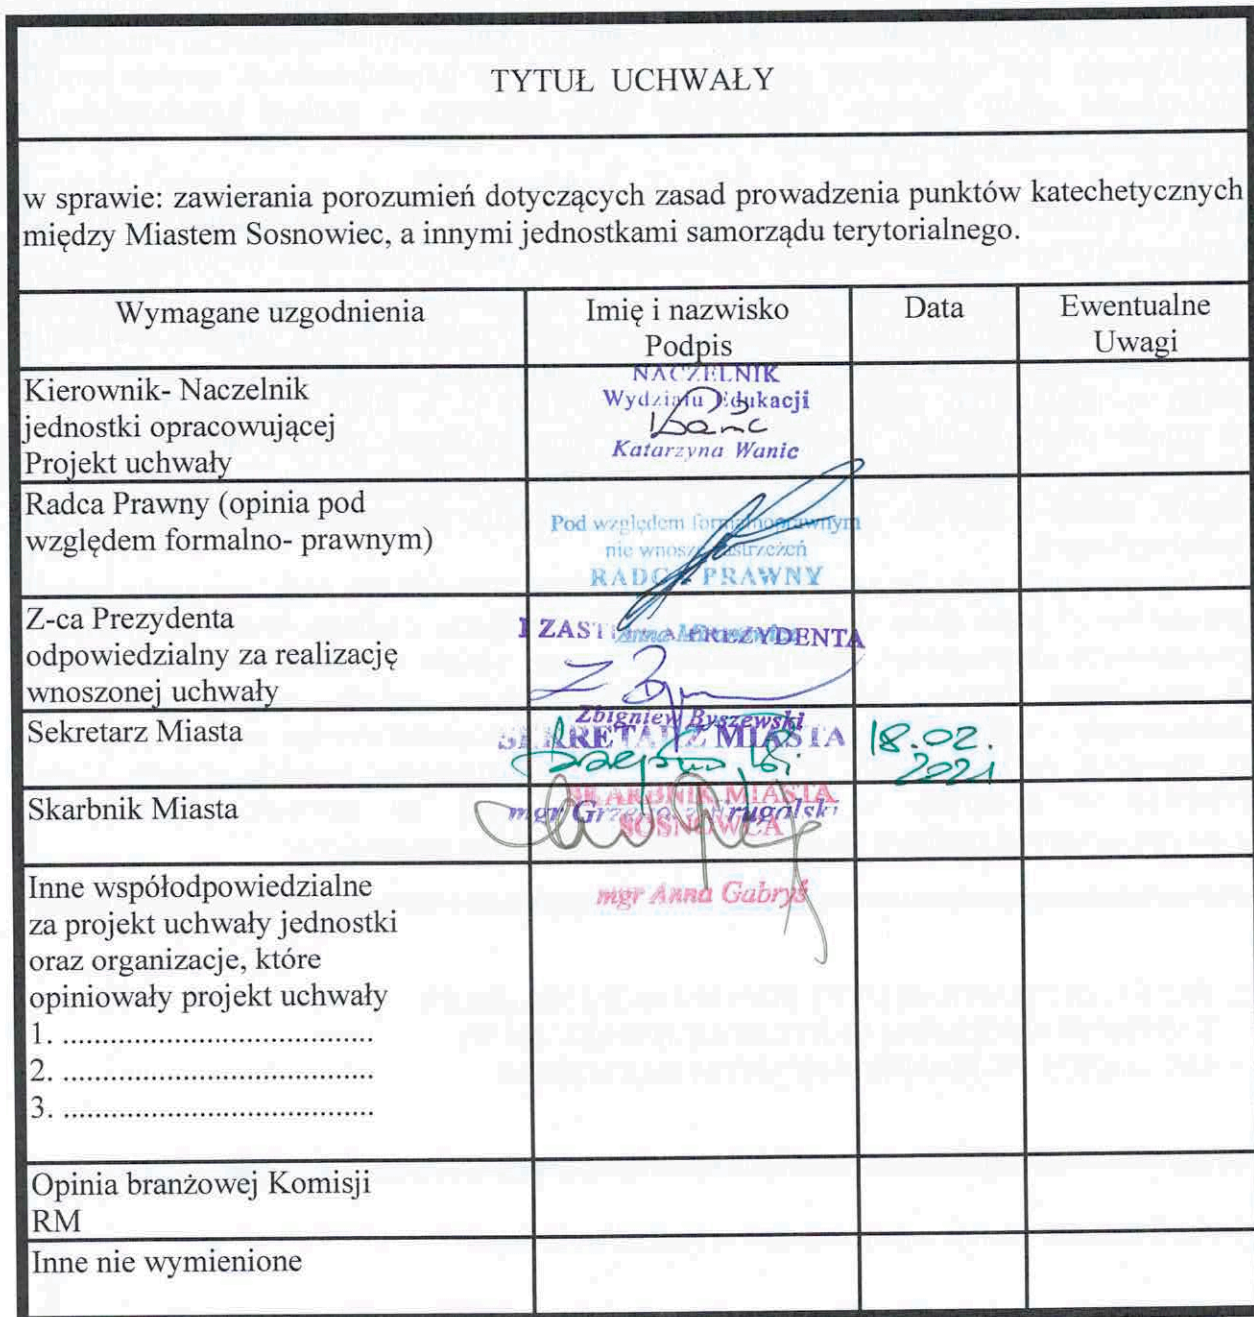 TYTUŁ UCHWAŁY
w sprawie: zawierania porozumień dotyczących zasad prowadzenia punktów katechetycznych
między Miastem Sosnowiec, a innymi jednostkami samorządu terytorialnego.
Wymagane uzgodnienia
Imię i nazwisko
Podpis
Data
Ewentualne
Uwagi
Kierownik- Naczelnik
jednostki opracowującej
Projekt uchwały
NACZELNIK
Wydziału Edukacji
Katarzyna Wanic
Radca Prawny (opinia pod
względem formalno- prawnym)
Pod względem formalnoprawnym
nie wnoszę zastrzeżeń
RADCA PRAWNY
Anna
Z-ca Prezydenta
odpowiedzialny za realizację
wnoszonej uchwały
I ZASTĘPCA PREZYDENTA
Zbigniew Byszewski
Sekretarz Miasta
SEKRETARZ MIASTA
18.02.
2021
Skarbnik Miasta
mgr
SKARBNIK MIASTA
SOSNOWCA
mgr Anna Gabryś
Inne współodpowiedzialne
za projekt uchwały jednostki
oraz organizacje, które
opiniowały projekt uchwały
1. .......................................
2. .......................................
3. .......................................
Opinia branżowej Komisji
RM
Inne nie wymienione